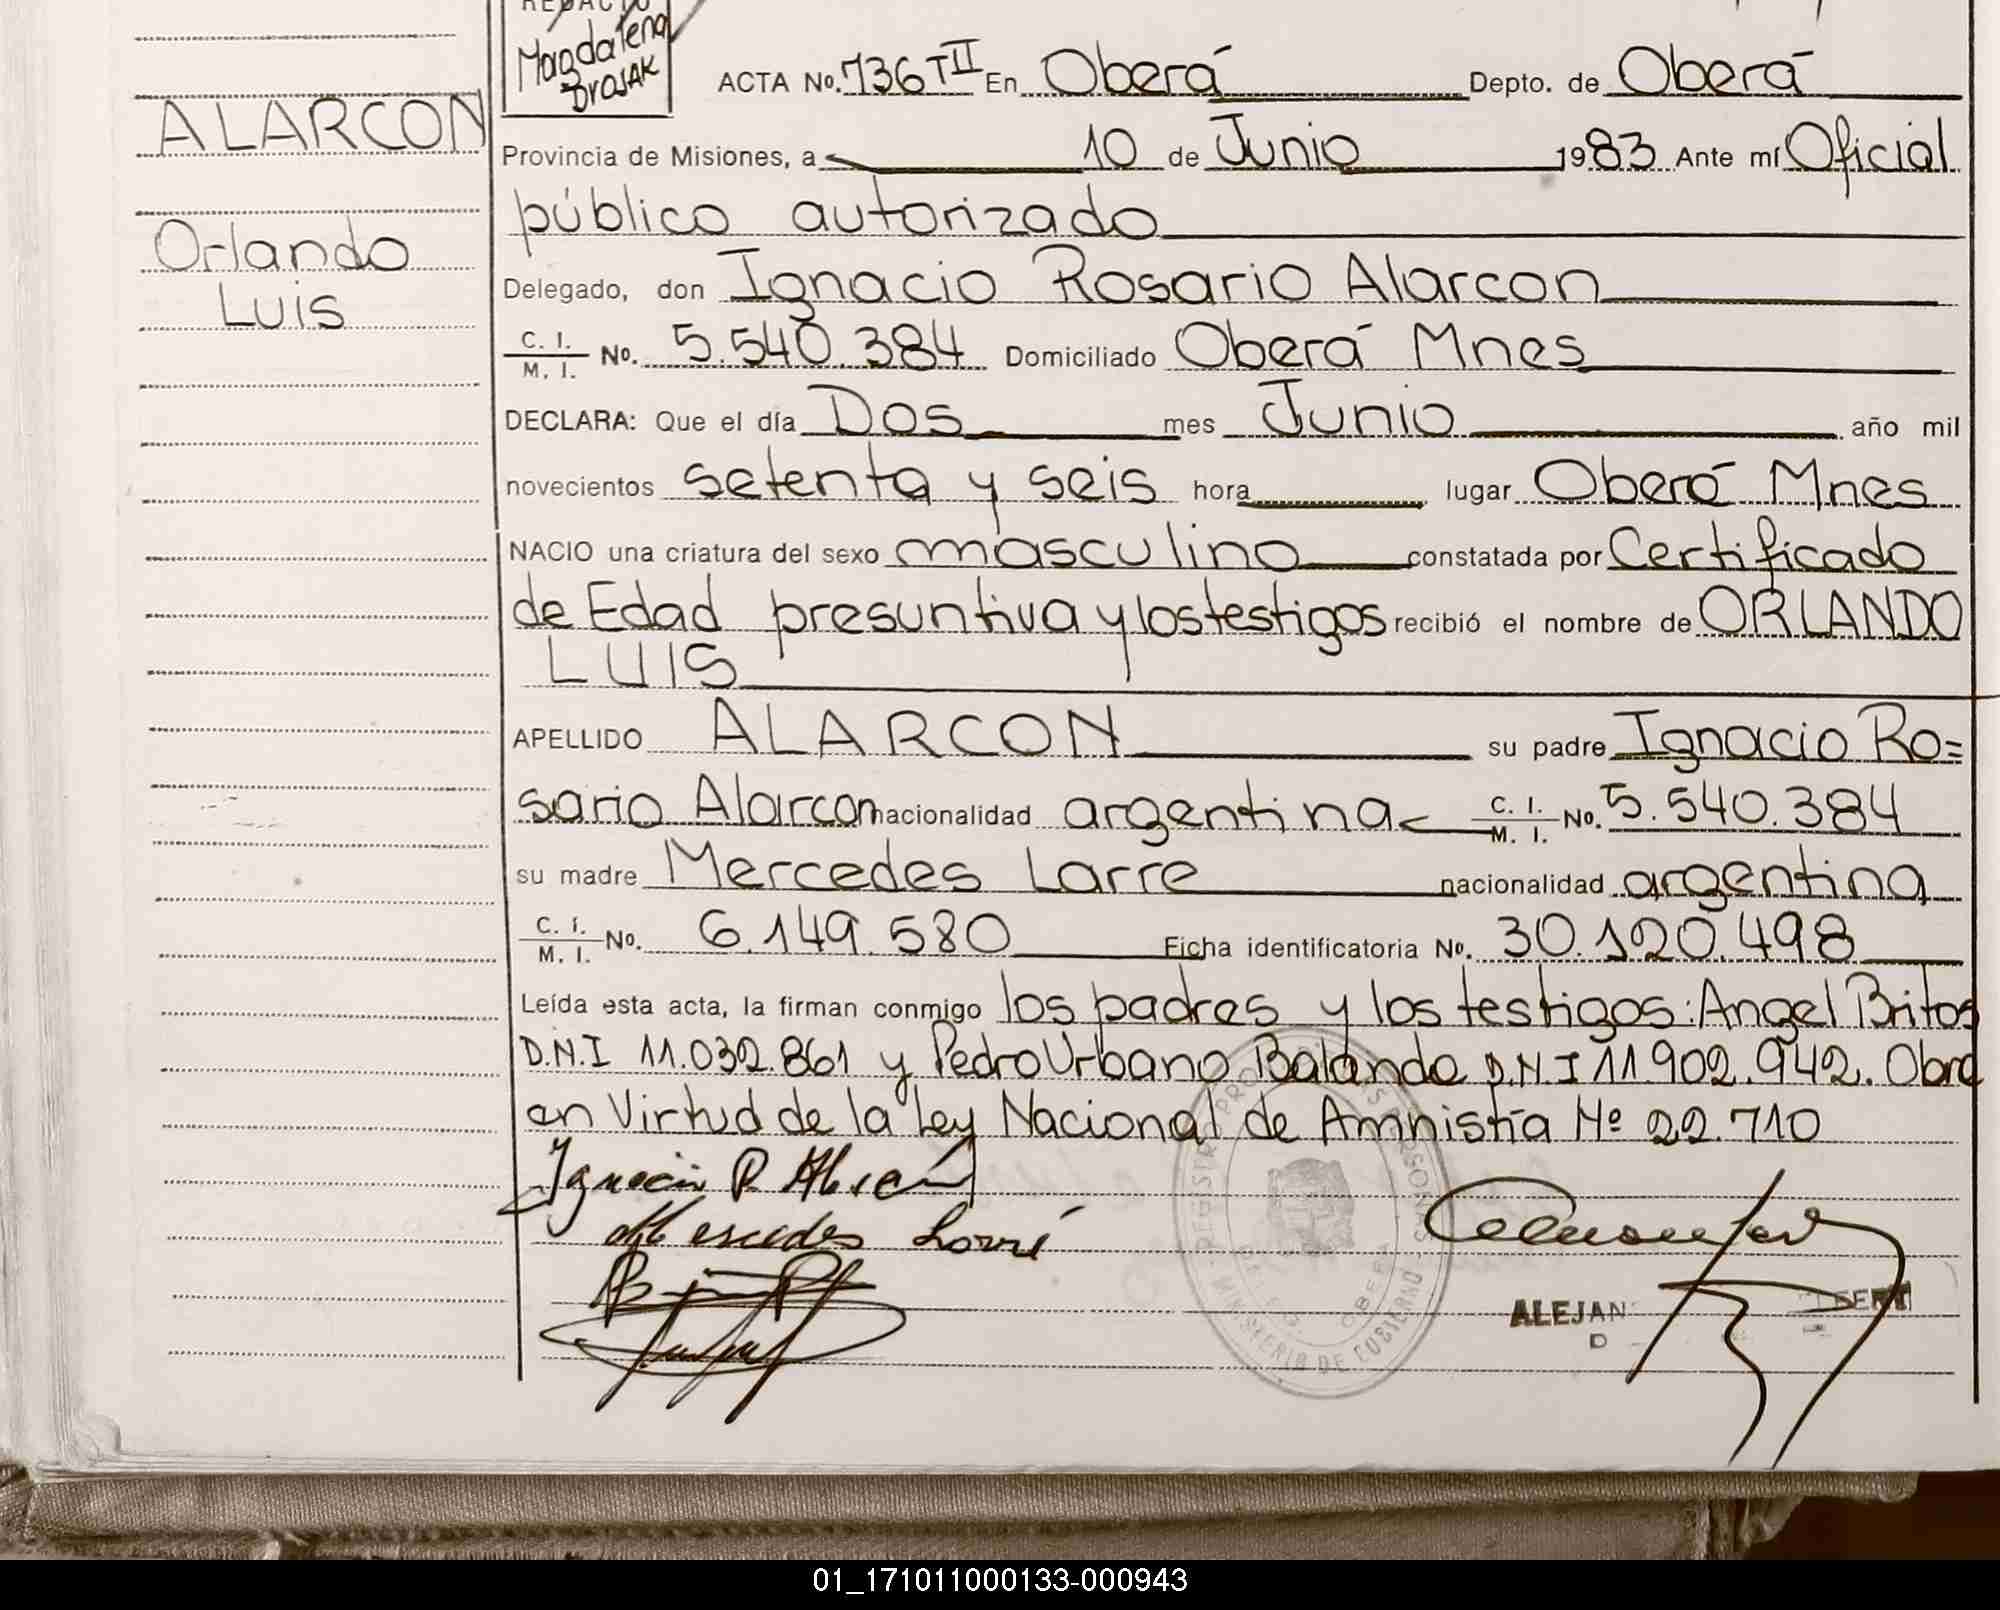 REDACTO
Magdalena
BroJAK
ALARCON
Orlando
Luis
ACTA No. 736 TII En Oberá Depto. de Oberá
Provincia de Misiones, a 10 de Junio 1983 Ante mí Oficial
público autorizado
Delegado, don Ignacio Rosario Alarcon
C. I. / M. I. No. 5.540.384 Domiciliado Oberá Mnes
DECLARA: Que el día Dos mes Junio año mil
novecientos setenta y seis hora lugar Oberá Mnes
NACIO una criatura del sexo masculino constatada por Certificado
de Edad presuntiva y los testigos recibió el nombre de ORLANDO
LUIS
APELLIDO ALARCON su padre Ignacio Ro=
sario Alarcon nacionalidad argentina C. I. / M. I. No. 5.540.384
su madre Mercedes Larre nacionalidad argentina
C. I. / M. I. No. 6.149.580 Ficha identificatoria No. 30.120.498
Leída esta acta, la firman conmigo los padres y los testigos: Angel Britos
D.N.I 11.032.861 y Pedro Urbano Balando D.N.I 11.902.942. Obra
en Virtud de la Ley Nacional de Amnistía Nº 22.710
Ignacio R Alarcón
Mercedes Larré
MINISTERIO DE GOBIERNO
OBERA
ALEJAN
D
01_171011000133-000943